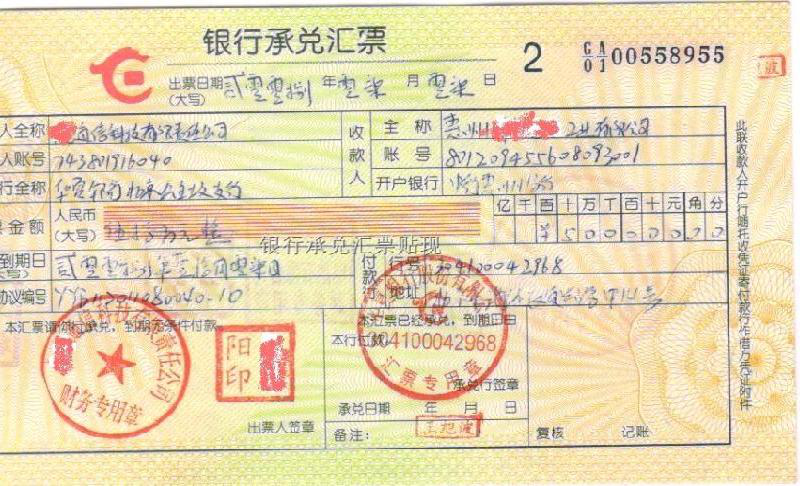 银行承兑汇票
2 GA/01 00558955
出票日期(大写) 贰零零捌 年 零柒 月 零柒 日
人全称 通信科技有限责任公司 收款人 全称 惠州 工业有限公司
人账号 743801916040 账号 801209455608093001
行全称 华夏银行北京 支行 开户银行
金额 人民币(大写) 伍拾万元整 亿千百十万千百十元角分 ¥50000000
银行承兑汇票贴现
到期日 贰零零捌年 月零柒日 付款 行号 04100042968
协议编号 地址 号
本汇票请你行承兑，到期无条件付款。
本汇票已经承兑，到期日由本行付款
04100042968
汇票专用章
承兑行签章
有限责任公司
财务专用章
阳印
出票人签章
承兑日期 年 月 日
备注：
王旭波
复核 记账
此联收款人开户行随托收凭证寄付款行作借方凭证附件
波